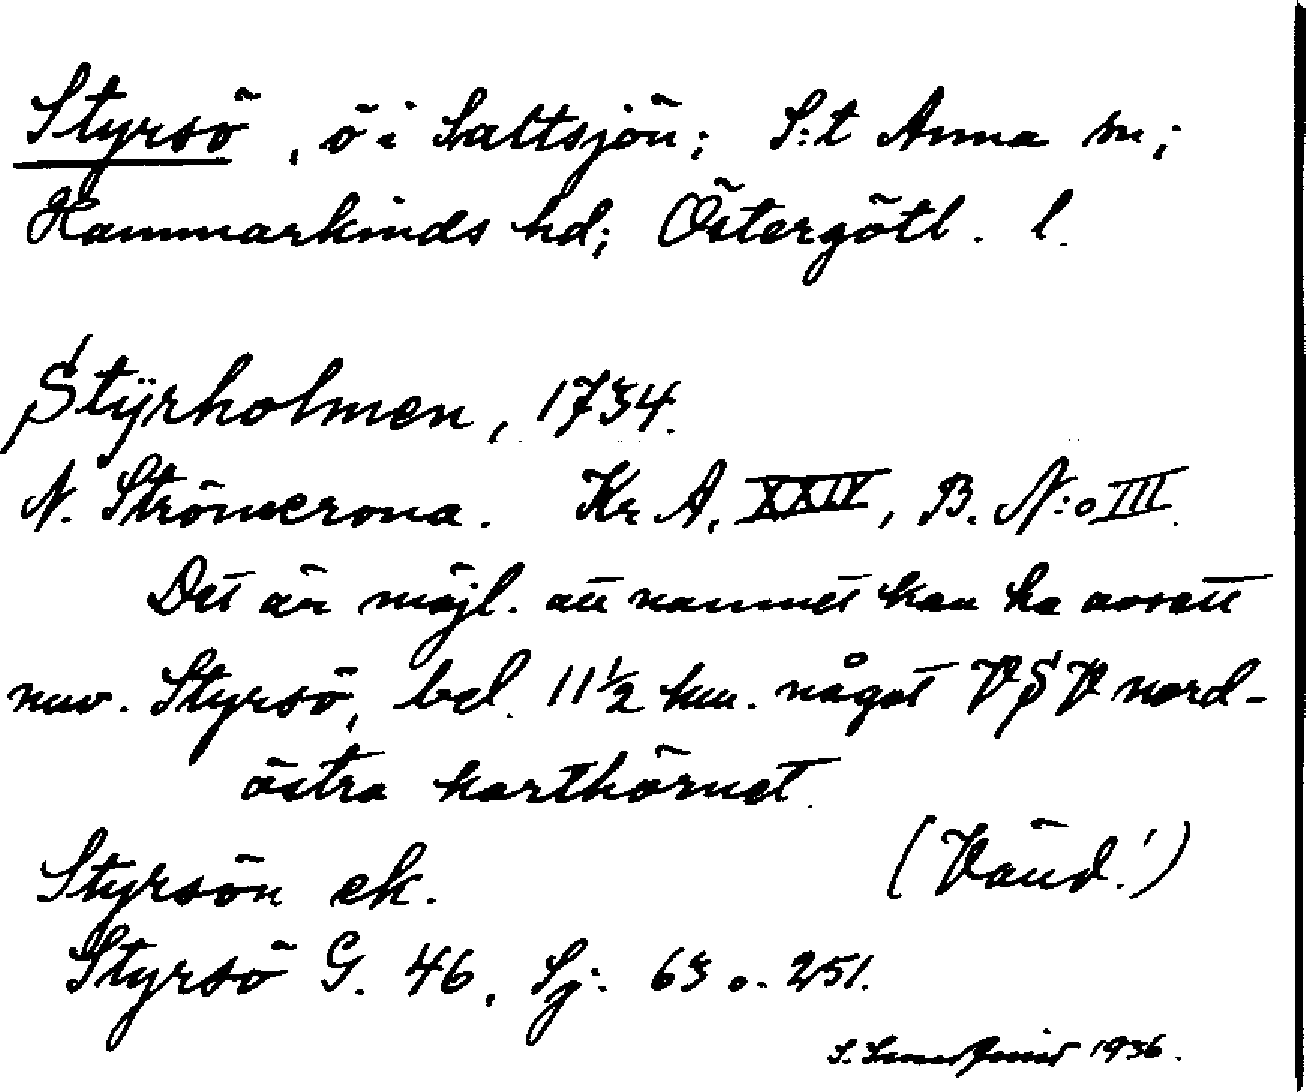 Styrsö, ö i Saltsjön; S:t Anna sn;
Hammarkinds hd; Östergötl. l.
Stÿrholmen, 1734.
N. Strömcrona. Kr A, XXIV, B. N:o III.
Det är möjl. att namnet kan ha avsett
nuv. Styrsö, bel. 11½ km. något VSV nord-
östra karthörnet.
Styrsön ek. (Vänd!)
Styrsö G. 46, Sj: 63 o. 251.
S. 1936.